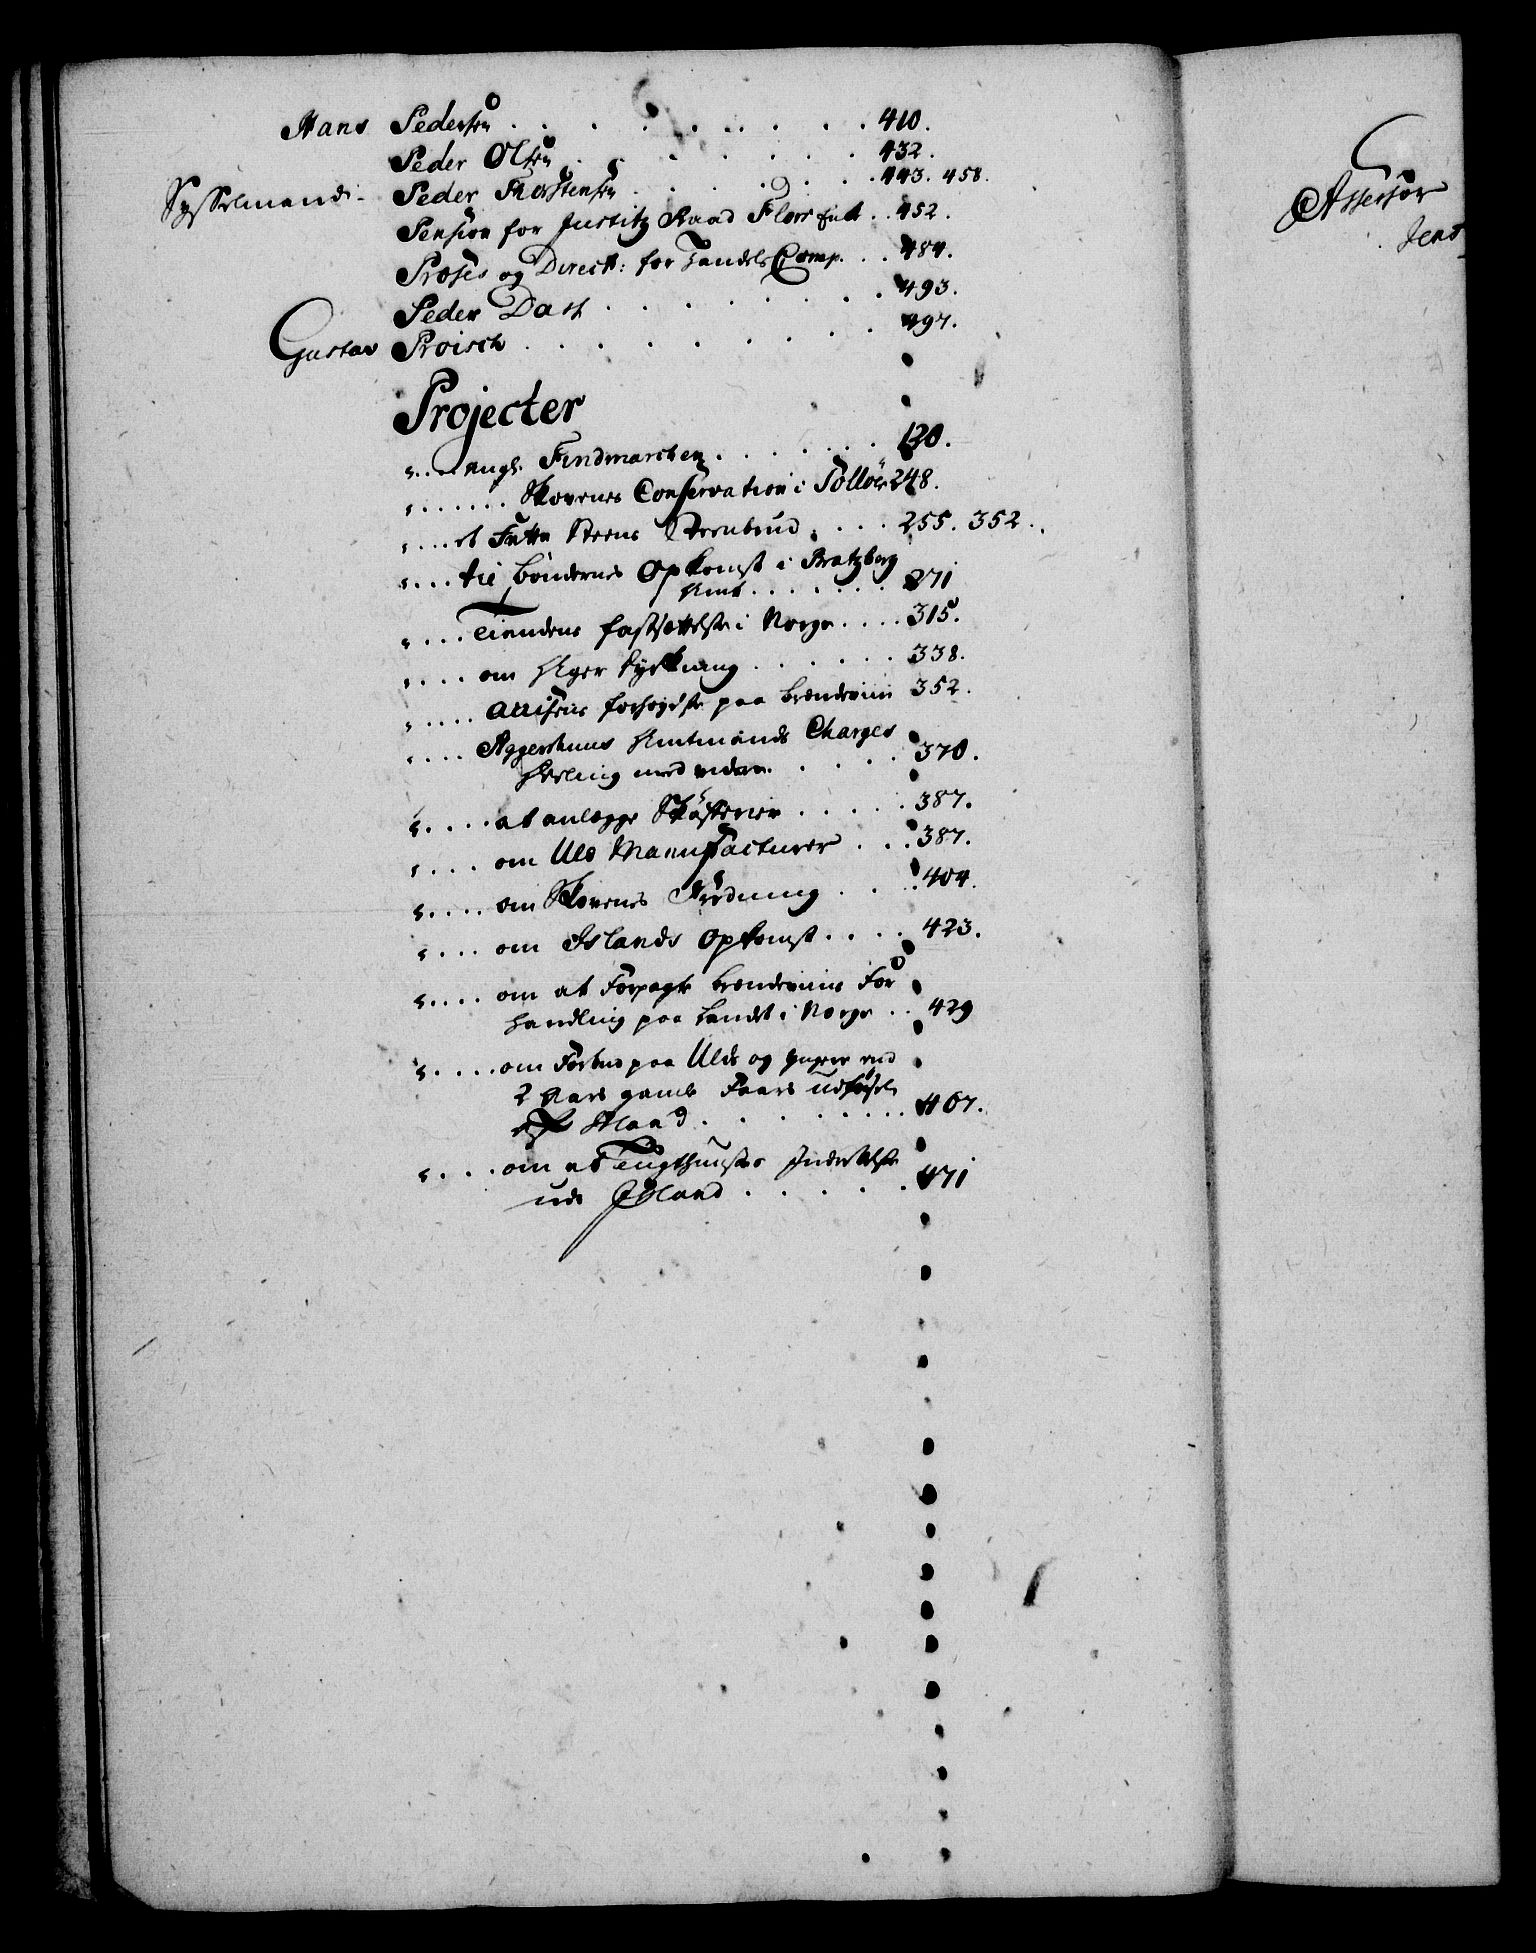 Hans Pedersen . . . . . . . . . 410.
Peder Olsen . . . . . . . 432.
Sysselmand. Peder Thorstensen . . . . . . 443. 458.
Pension for Justitz Raad Flors Enk . . 452.
Præses og Direct: for Handels Comp. . . 484.
Peder Dass . . . . . . . . 493.
Gustav Proisch . . . . . . . . 497.
Projecter
" . . . ang: Findmarcken . . . . . . 120.
" . . . . . . Skovenes Conservation i Solløer 248.
" . . . . 255. 352.
" . . . til Bøndernes Opkomst i Bratzberg
Amt . . . . . . . 271
" . . . Tiendens fastsættelse i Norge . . . . 315.
" . . . . om Ager dyrkning . . . . . . 338.
" . . . . Accisens forhøyelse paa Brændeviin 352.
" . . . . Aggershuus Amtmands Charges
Deeling med videre . . . . . 370.
" . . . . at anlægge Skäfferier . . . . . 387.
" . . . . om Uld Manufacturer . . . 387.
" . . . . om Skovenes Fredning . . . . 404.
" . . . . om Islands Opkomst . . . . 423.
" . . . . om at Forpagte Brændeviins For
handling paa Landet i Norge . . 429
" . . . . om Forbud paa Ulds og yngere end
2 Aars gamle Faars udførsel
af Island . . . . . . . . 467.
" . . . . om et Tugthuuses Indrettelse
udi Island . . . . . 471
Assessor
Jens